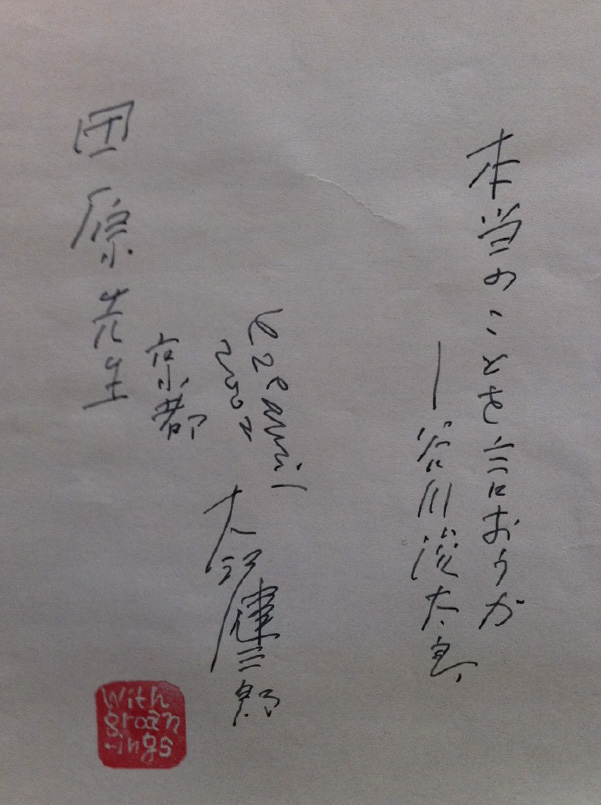 本当のことを言おうか
―谷川俊太郎
avril
2002
京都
大江健三郎
田原先生
With
groan
-ings